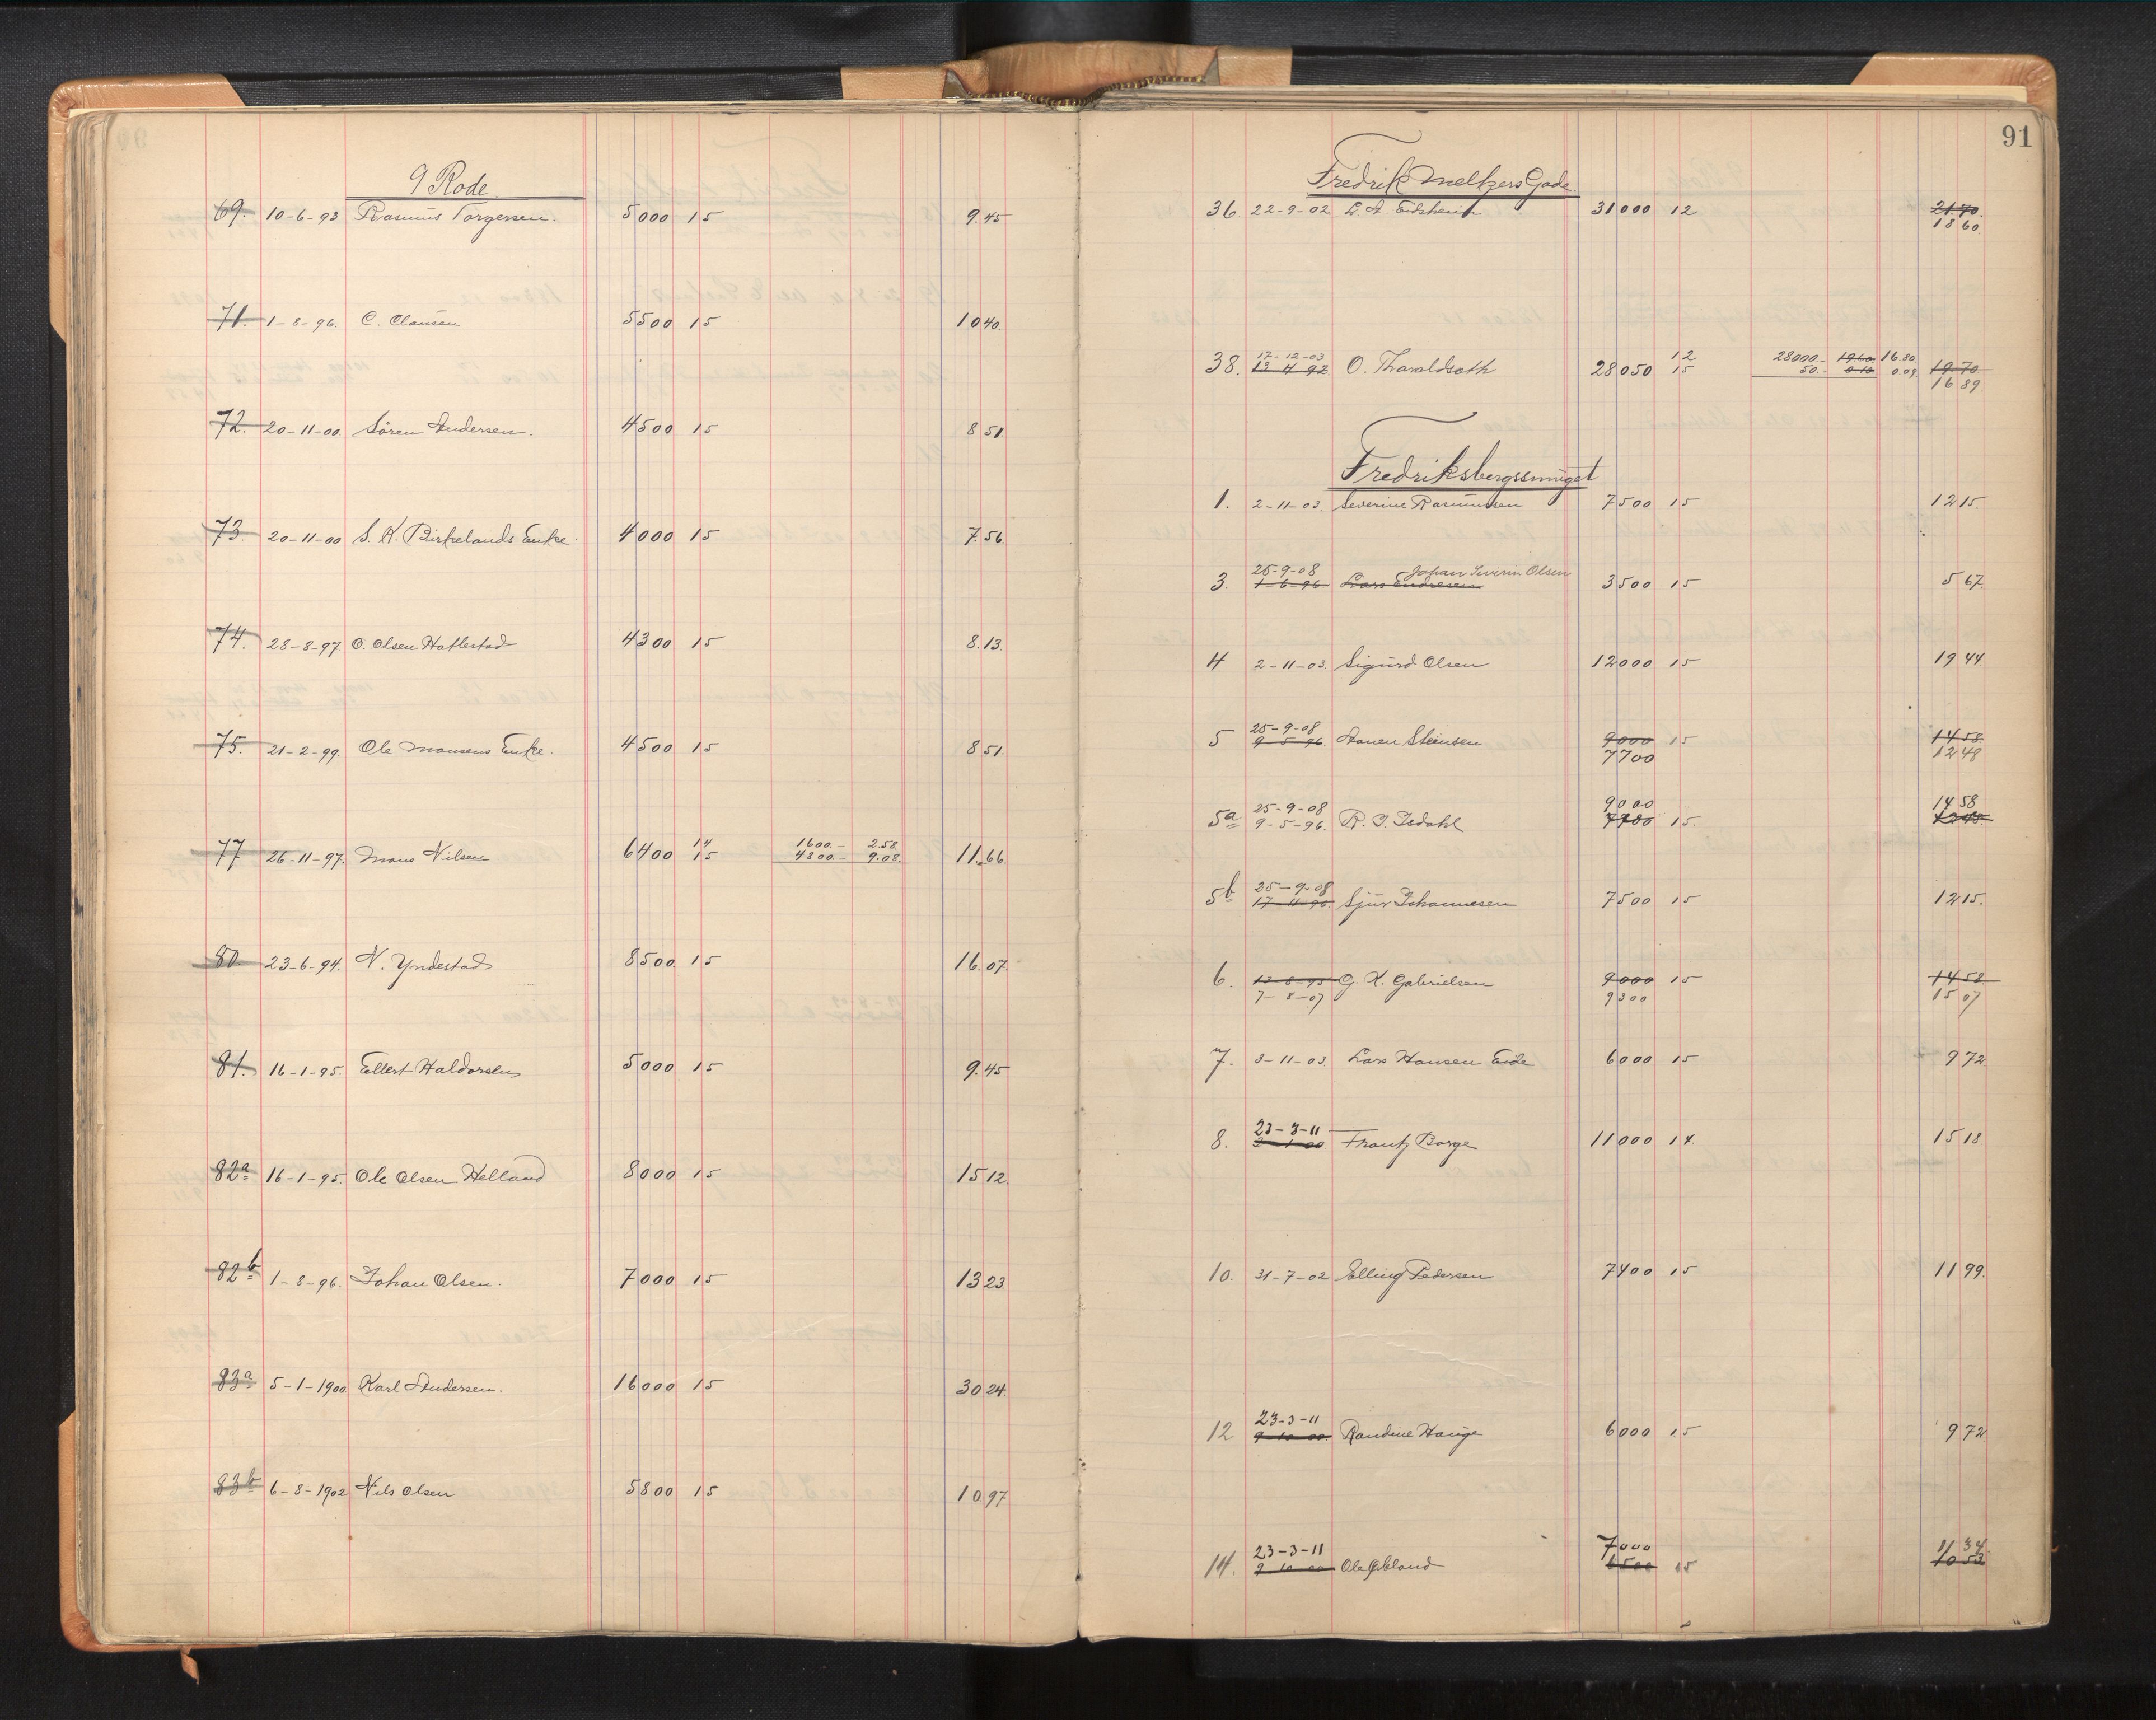 9 Rode.
69. 10-6-93 Rasmus Torgersen. 5000 15 9.45
71. 1-8-96. C. Clausen 5500 15 10 40.
72. 20-11-00. Sören Andersen. 4500 15 8 51.
73. 20-11-00 S. K. Birkelands Enke. 4000 15 7.56.
74. 28-8-97. O. Olsen Hatlestad 4300 15 8.13.
75. 21-2-99. Ole Monsens Enke. 4500 15 8 51.
77 26-11-97. Mons Nilsen 6400 14 1600.- 2.58.
15 4800.- 9.08. 11.66.
80. 23-6-94. N. Yndestad 8500. 15 16.07.
81. 16-1-95. Ellert Haldorsen 5000 15 9.45
82a 16-1-95. Ole Olsen Helland 8000 15 15 12.
82b 1-8-96. Johan Olsen. 7000 15 13 23.
83a 5-1-1900 Karl Andersen. 16000 15 30 24.
83b 6-8-1902 Nils Olsen 5800 15 10 97
91
Fredrik Meltzers Gade.
36. 22-9-02 31000 12 21.70.
18 60.
17-12-03 12 28000.- 19.60. 16.80
38. 13 4 92. O. Tharaldseth 28050 15 50.- 0.10 0.09 19.70
16 89
Fredriksbergssmuget
1. 2-11-03. Severine Rasmussen 7500 15 12 15.
25-9-08 Johan Severin Olsen
3. 1-6-96 Lars Endresen 3500 15 5 67.
4 2-11-03. Sigurd Olsen 12000 15 19 44
25-9-08
5 9-5-96. Steinsen 9000 15 14 58.
7700 12 48
25-9-08 9000 14 58
5a 9-5-96. R. J. Isdahl 7700 15. 12 48.
25-9-08
5b 17-11-96. Sjur Johannesen 7500 15 12 15.
6. 13-8-95 G. K. Gabrielsen 9000 15 14 58
7-8-07 9300 15 07
7. 3-11-03. Lars Hansen Eide 6000 15 9 72.
23-3-11
8. Frantz Borge 11000 14. 15 18
10. 31-7-02 Elling Pedersen 7400 15 11 99.
23-3-11
12 9-10-00. Randine Hauge 6000 15 9 72
23-3-11 7000 11 34
14. 9 10 00 Ole Økland 6500 15 10 53.